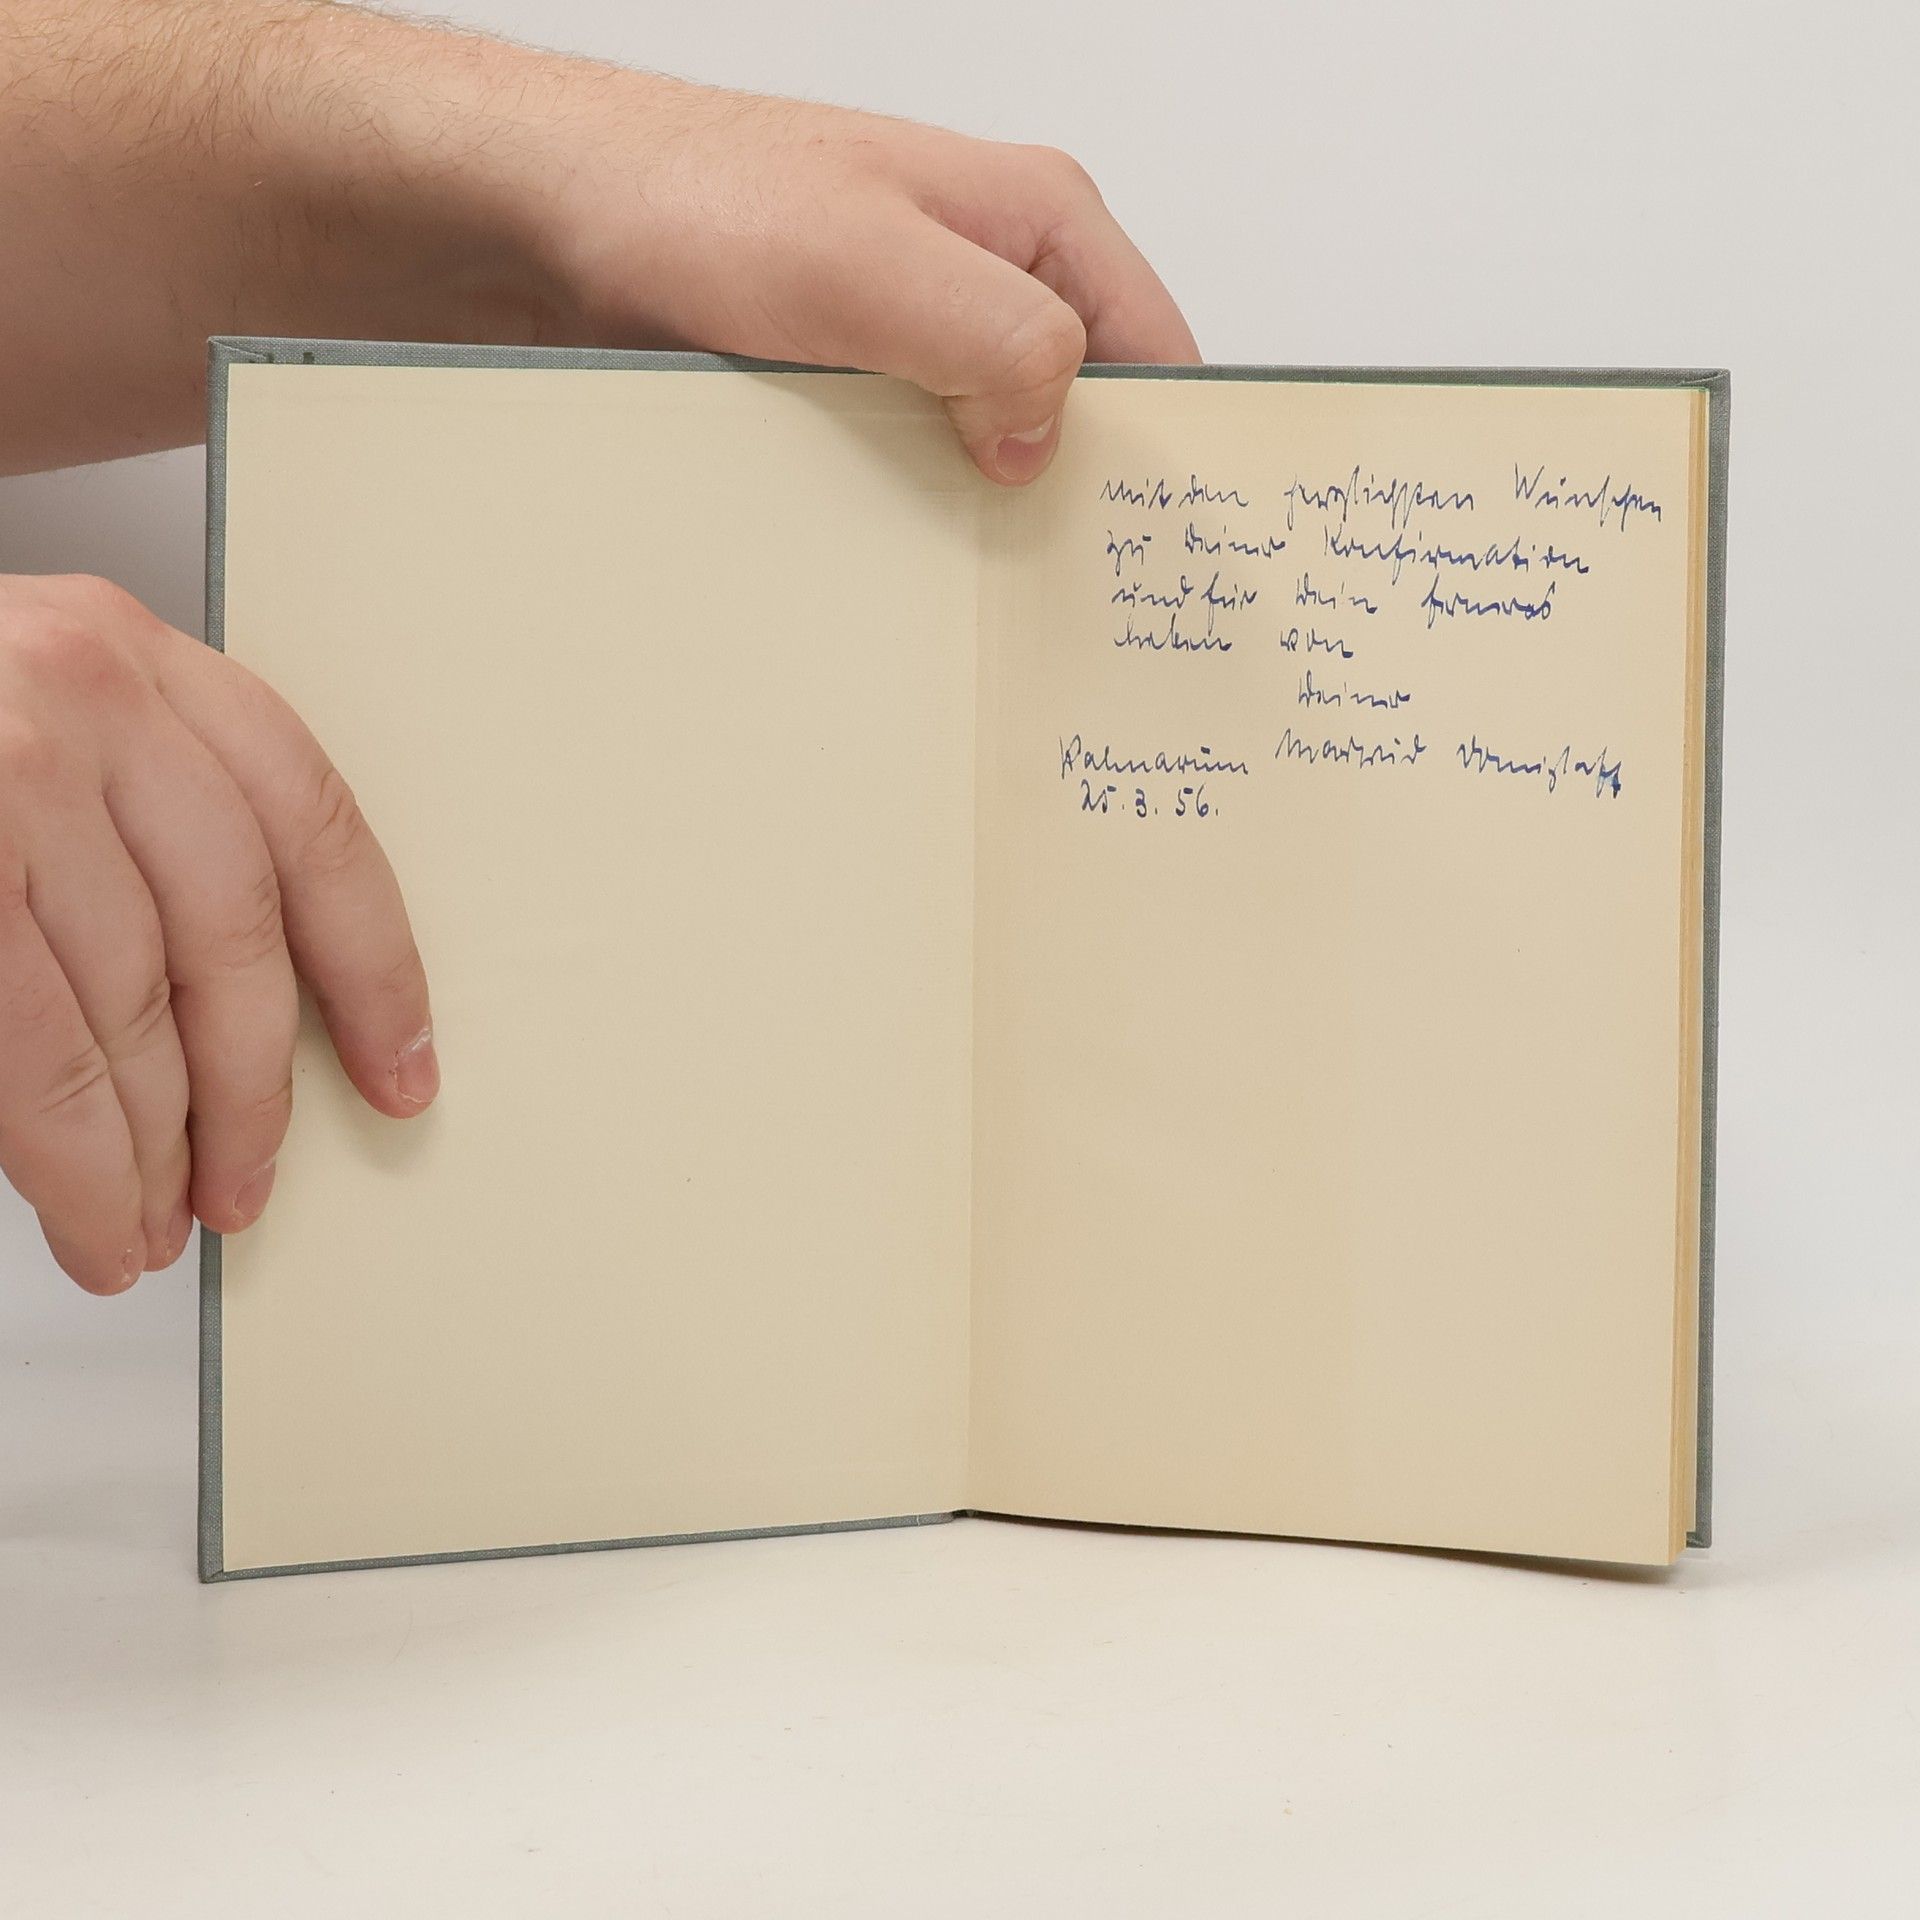 mit den herzlichsten Wünschen
zu Deiner Konfirmation
und für Dein ferneres
Leben von
Deiner
Palmarum
25.3.56.